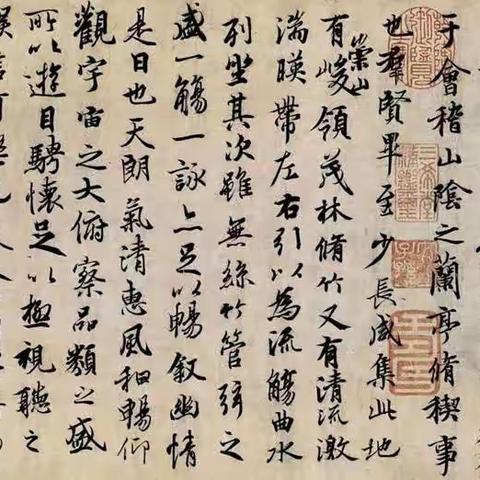 于會稽山陰之蘭亭脩稧事
也羣賢畢至少長咸集此地
有崇山峻領茂林脩竹又有清流激
湍暎帶左右引以為流觴曲水
列坐其次雖無絲竹管弦之
盛一觴一詠亦足以暢叙幽情
是日也天朗氣清惠風和暢仰
觀宇宙之大俯察品類之盛
所以遊目騁懷足以極視聽之